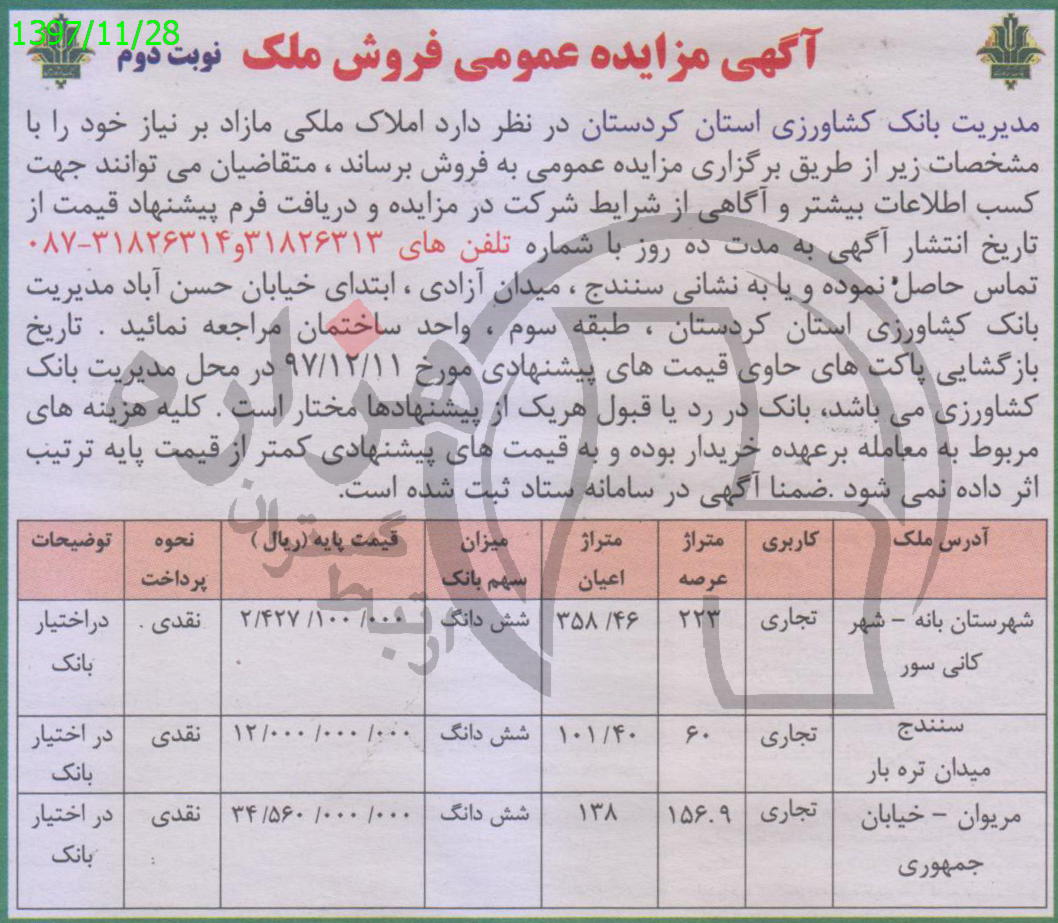 1397/11/28
آگهی مزایده عمومی فروش ملک نوبت دوم
مدیریت بانک کشاورزی استان کردستان در نظر دارد املاک ملکی مازاد بر نیاز خود را با
مشخصات زیر از طریق برگزاری مزایده عمومی به فروش برساند ، متقاضیان می توانند جهت
کسب اطلاعات بیشتر و آگاهی از شرایط شرکت در مزایده و دریافت فرم پیشنهاد قیمت از
تاریخ انتشار آگهی به مدت ده روز با شماره تلفن های ۳۱۸۲۶۳۱۳و۳۱۸۲۶۳۱۴-۰۸۷
تماس حاصل نموده و یا به نشانی سنندج ، میدان آزادی ، ابتدای خیابان حسن آباد مدیریت
بانک کشاورزی استان کردستان ، طبقه سوم ، واحد ساختمان مراجعه نمائید . تاریخ
بازگشایی پاکت های حاوی قیمت های پیشنهادی مورخ ۹۷/۱۲/۱۱ در محل مدیریت بانک
کشاورزی می باشد، بانک در رد یا قبول هریک از پیشنهادها مختار است . کلیه هزینه های
مربوط به معامله برعهده خریدار بوده و به قیمت های پیشنهادی کمتر از قیمت پایه ترتیب
اثر داده نمی شود .ضمنا آگهی در سامانه ستاد ثبت شده است.
آدرس ملک کاربری متراژ عرصه متراژ اعیان میزان سهم بانک قیمت پایه (ریال ) نحوه پرداخت توضیحات
شهرستان بانه – شهر کانی سور تجاری ۲۲۳ ۳۵۸/۴۶ شش دانگ ۲/۴۲۷/۱۰۰/۰۰۰ نقدی . دراختیار بانک
سنندج میدان تره بار تجاری ۶۰ ۱۰۱/۴۰ شش دانگ ۱۲/۰۰۰/۰۰۰/۰۰۰ نقدی در اختیار بانک
مریوان – خیابان جمهوری تجاری ۱۵۶.۹ ۱۳۸ شش دانگ ۳۴/۵۶۰/۰۰۰/۰۰۰ نقدی در اختیار بانک
هزاره
ارتباط گستران